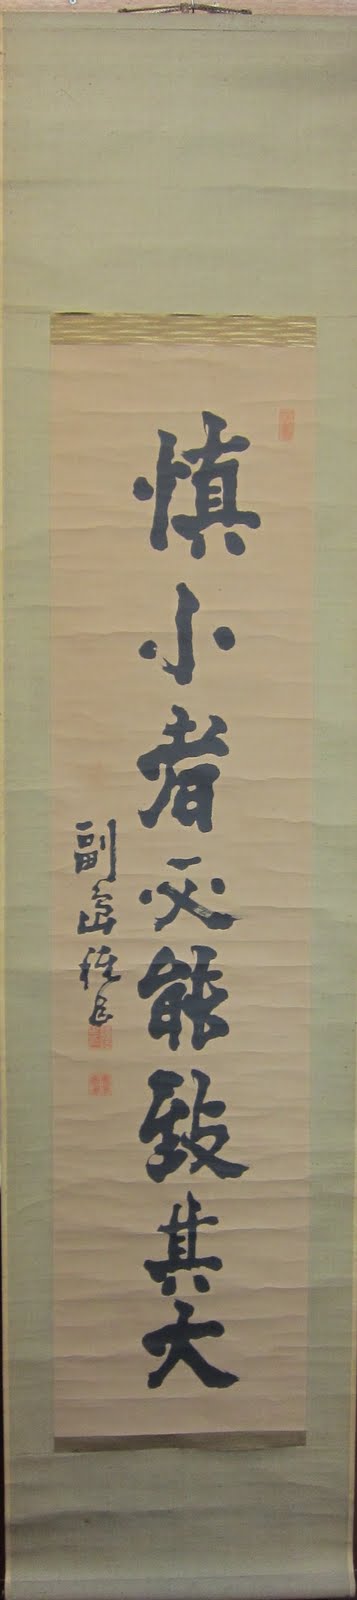 慎小者必能致其大
副島種臣